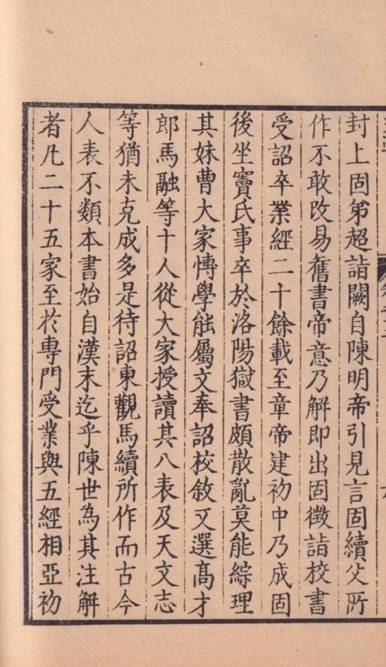 封上固弟超詣闕自陳明帝引見言固續父所
作不敢改易舊書帝意乃解即出固徵詣校書
受詔卒業經二十餘載至章帝建初中乃成固
後坐竇氏事卒於洛陽獄書頗散亂莫能綜理
其妹曹大家博學能屬文奉詔校敘又選高才
郎馬融等十人從大家授讀其八表及天文志
等猶未克成多是待詔東觀馬續所作而古今
人表不類本書始自漢末迄乎陳世為其注解
者凡二十五家至於專門受業與五經相亞初